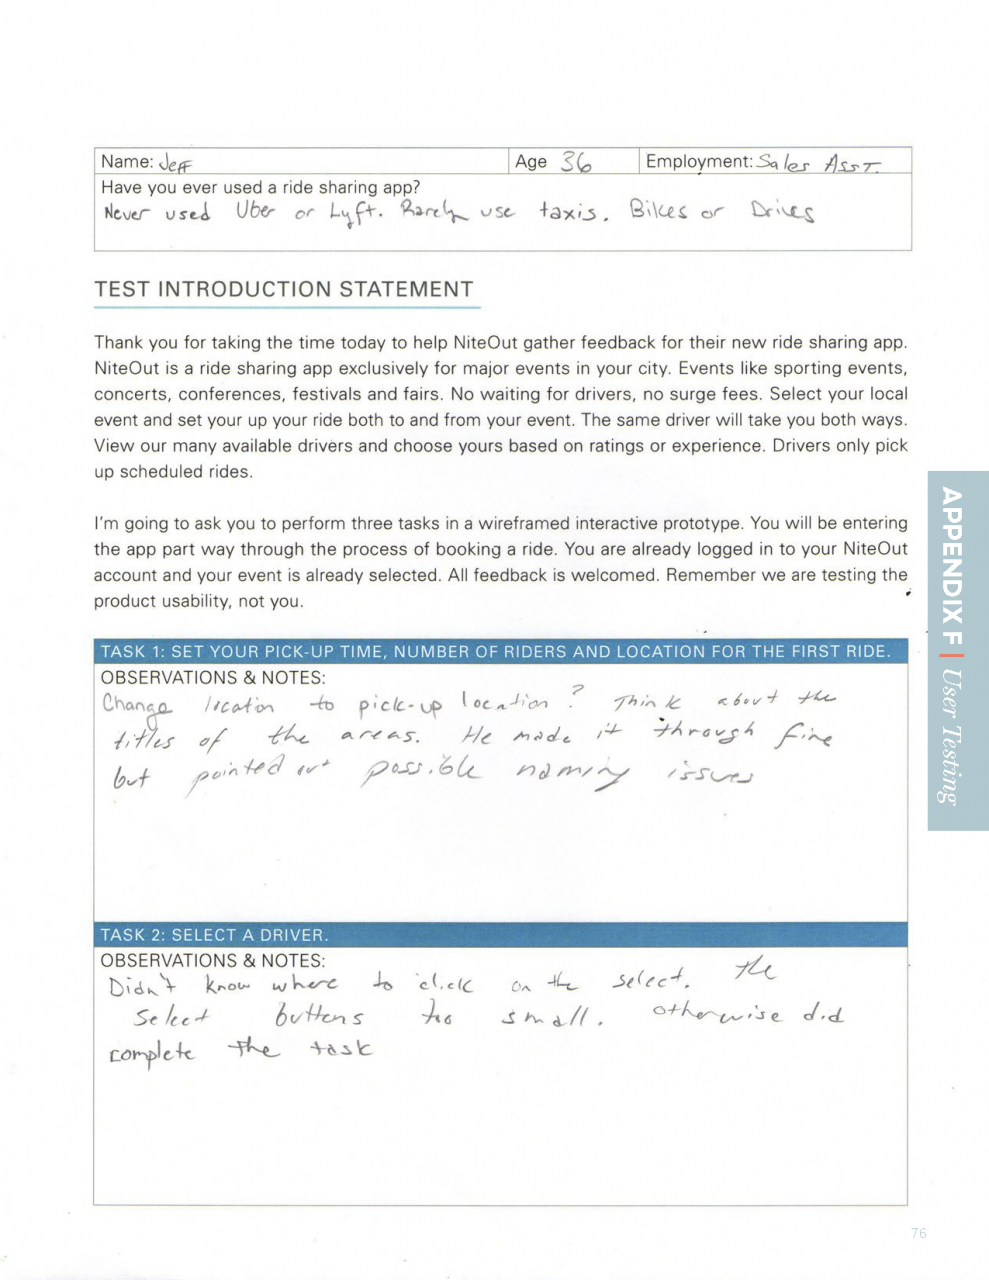 Name: Jeff Age 36 Employment: Sales Asst.
Have you ever used a ride sharing app?
Never used Uber or Lyft. Rarely use taxis. Bikes or Drives
TEST INTRODUCTION STATEMENT
Thank you for taking the time today to help NiteOut gather feedback for their new ride sharing app.
NiteOut is a ride sharing app exclusively for major events in your city. Events like sporting events,
concerts, conferences, festivals and fairs. No waiting for drivers, no surge fees. Select your local
event and set your up your ride both to and from your event. The same driver will take you both ways.
View our many available drivers and choose yours based on ratings or experience. Drivers only pick
up scheduled rides.
I'm going to ask you to perform three tasks in a wireframed interactive prototype. You will be entering
the app part way through the process of booking a ride. You are already logged in to your NiteOut
account and your event is already selected. All feedback is welcomed. Remember we are testing the
product usability, not you.
TASK 1: SET YOUR PICK-UP TIME, NUMBER OF RIDERS AND LOCATION FOR THE FIRST RIDE.
OBSERVATIONS & NOTES:
Change location to pick-up location? Think about the
titles of the areas. He made it through fine
but pointed out possible naming issues
TASK 2: SELECT A DRIVER.
OBSERVATIONS & NOTES:
Didn't know where to click on the select. The
select buttons too small. otherwise did
complete the task
APPENDIX F | User Testing
76